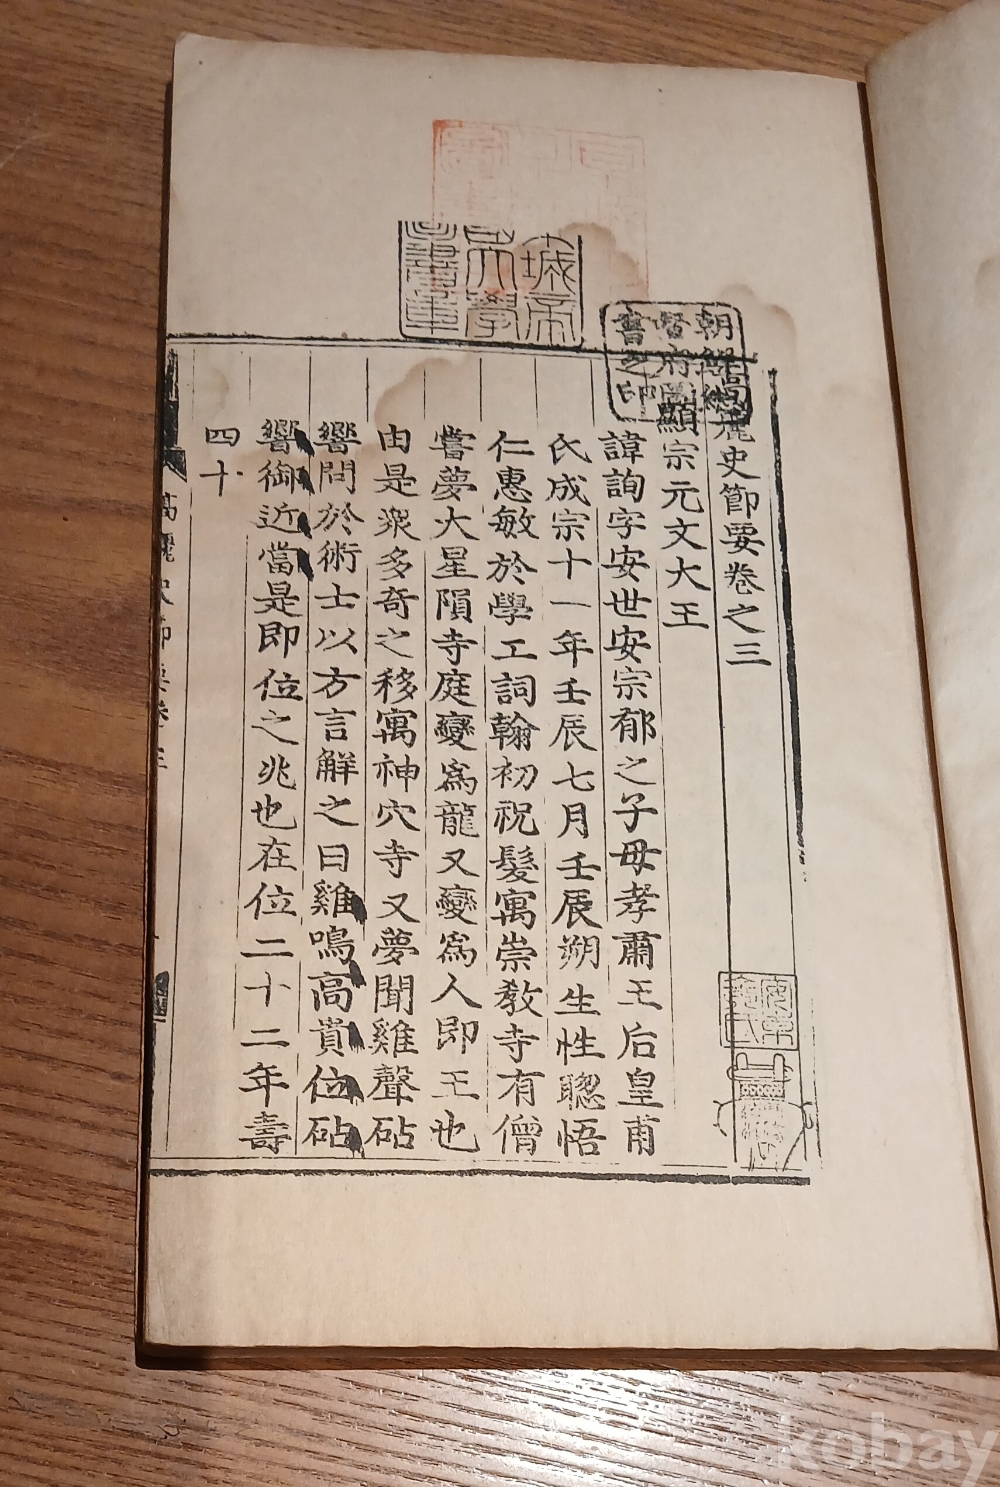 高麗史節要卷之三
顯宗元文大王
諱詢字安世安宗郁之子母孝肅王后皇甫
氏成宗十一年壬辰七月壬辰朔生性聰悟
仁惠敏於學工詞翰初祝髮寓崇教寺有僧
嘗夢大星隕寺庭變爲龍又變爲人即王也
由是衆多奇之移寓神穴寺又夢聞雞聲砧
響問於術士以方言解之曰雞鳴高貴位砧
響御近當是即位之兆也在位二十二年壽
四十
高麗史節要卷三
朝鮮總
督府圖
書之印
城帝
大學
書章
kobay